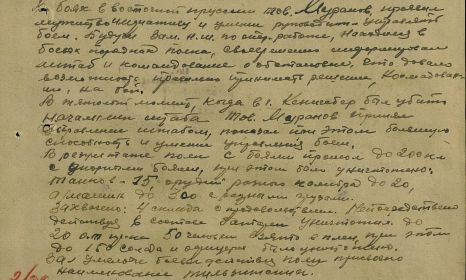 В боях в восточной пруссии тов. Муранов, проявил
мужество инициативу и умение руководить управлять
боем. Будучи Зам. Н.Ш. по опер. работе, находился в
боевых порядках полка, своевременно информировал
штаб и командование о обстановке, что давало
возможность правильно принимать решения, командован-
ию, на бой.
В тяжелый момент, когда в г. был убит
начальник штаба тов. Муранов принял
управление штабом, показал при этом большую
способность и умение управления боем.
В результате полк с боями прошел до 200 км
с упорными боями, при этом было уничтожено:
танков - 15, орудий разного калибра до 20,
автомашин до 300 с разными грузами.
Захвачено: склада с продовольствием. Непосредственно
действуя в составе уничтожил до
20 взято в плен при этом
до солдат и офицеров было уничтожено.
За боевые действия полку присвоено
наименование Тильзитский.